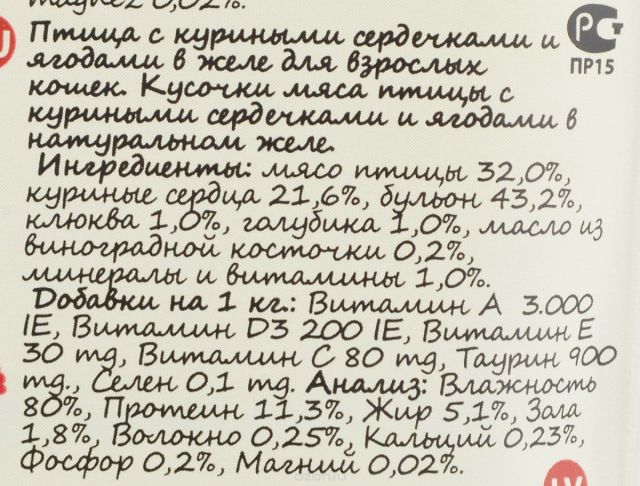 magnez 0,02%.
U
Птица с куриными сердечками и
ягодами в желе для взрослых
кошек. Кусочки мяса птицы с
куриными сердечками и ягодами в
натуральном желе.
Ингредиенты: мясо птицы 32,0%,
куриные сердца 21,6%, бульон 43,2%,
клюква 1,0%, голубика 1,0%, масло из
виноградной косточки 0,2%,
минералы и витамины 1,0%.
Добавки на 1 кг.: Витамин А 3.000
IE, Витамин D3 200 IE, Витамин Е
30 mg, Витамин С 80 mg, Таурин 900
mg., Селен 0,1 mg. Анализ: Влажность
80%, Протеин 11,3%, Жир 5,1%, Зола
1,8%, Волокно 0,25%, Кальций 0,23%,
Фосфор 0,2%, Магний 0,02%.
РСТ
ПР15
LV